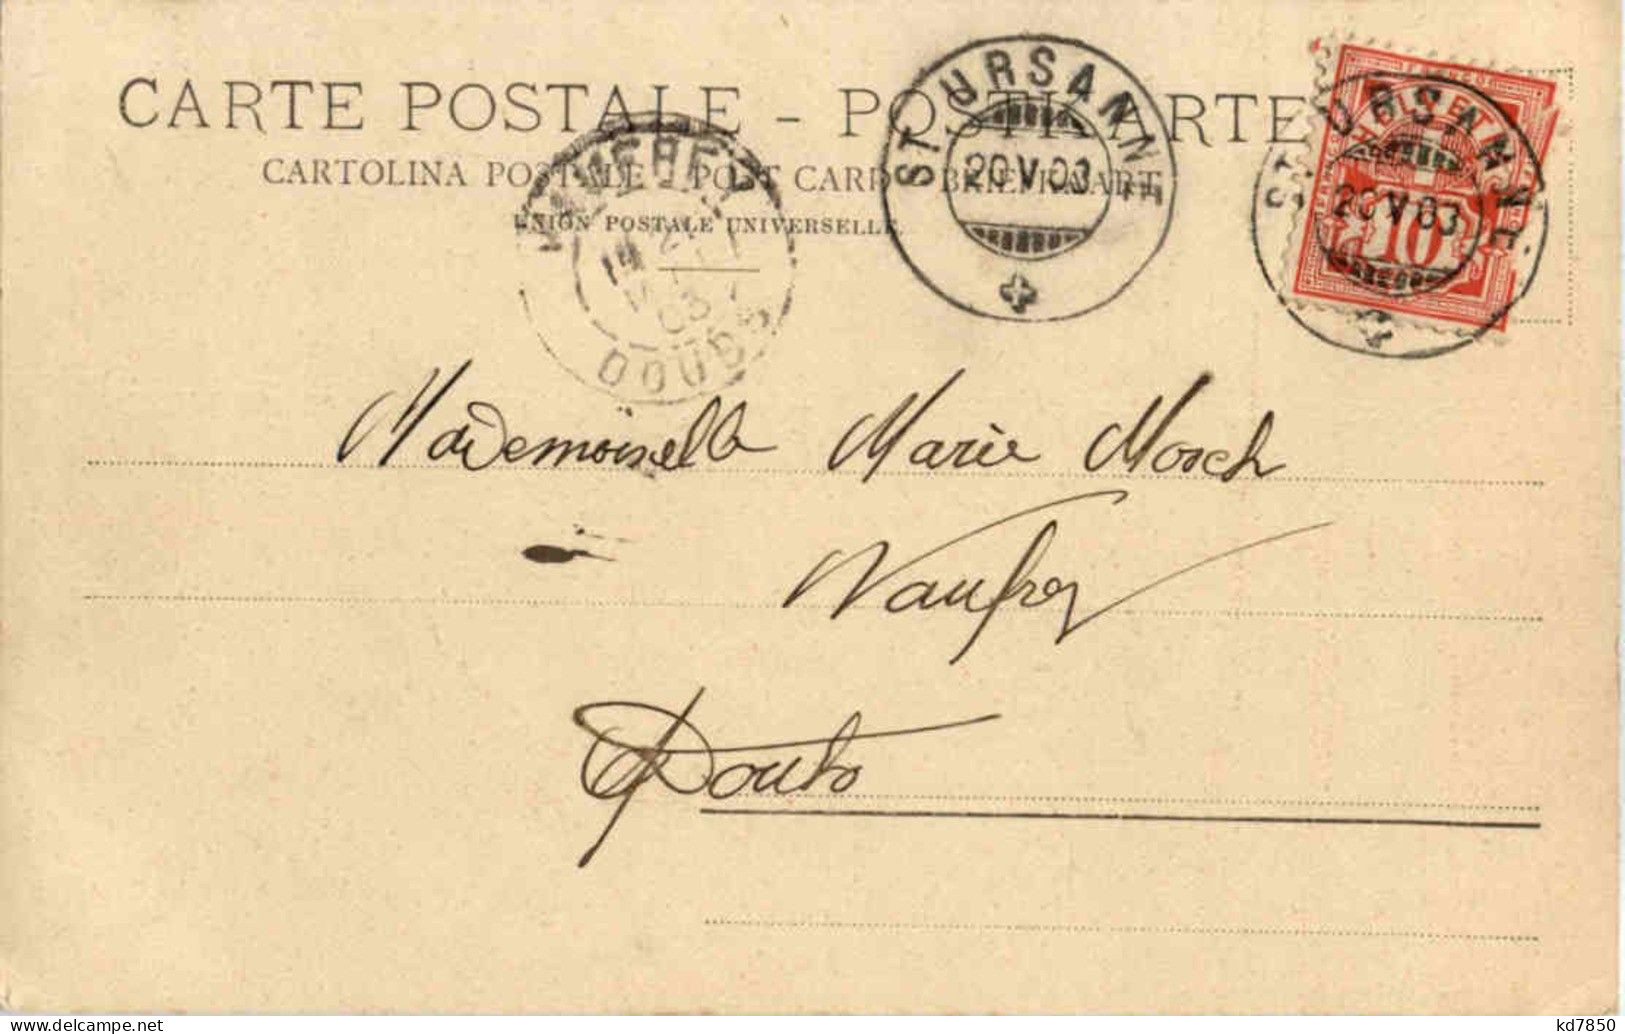 CARTE POSTALE - POSTKARTE
CARTOLINA POSTALE - POST CARD - BRIEFKAART
UNION POSTALE UNIVERSELLE
ST URSANNE
20 V 03
ST URSANNE
20 V 03
FRANCO
HELVETIA
10
03
DOUBS
Mademoiselle Marie Mosch
Vaufrey
Doubs
https://www.delcampe.net
kd7850